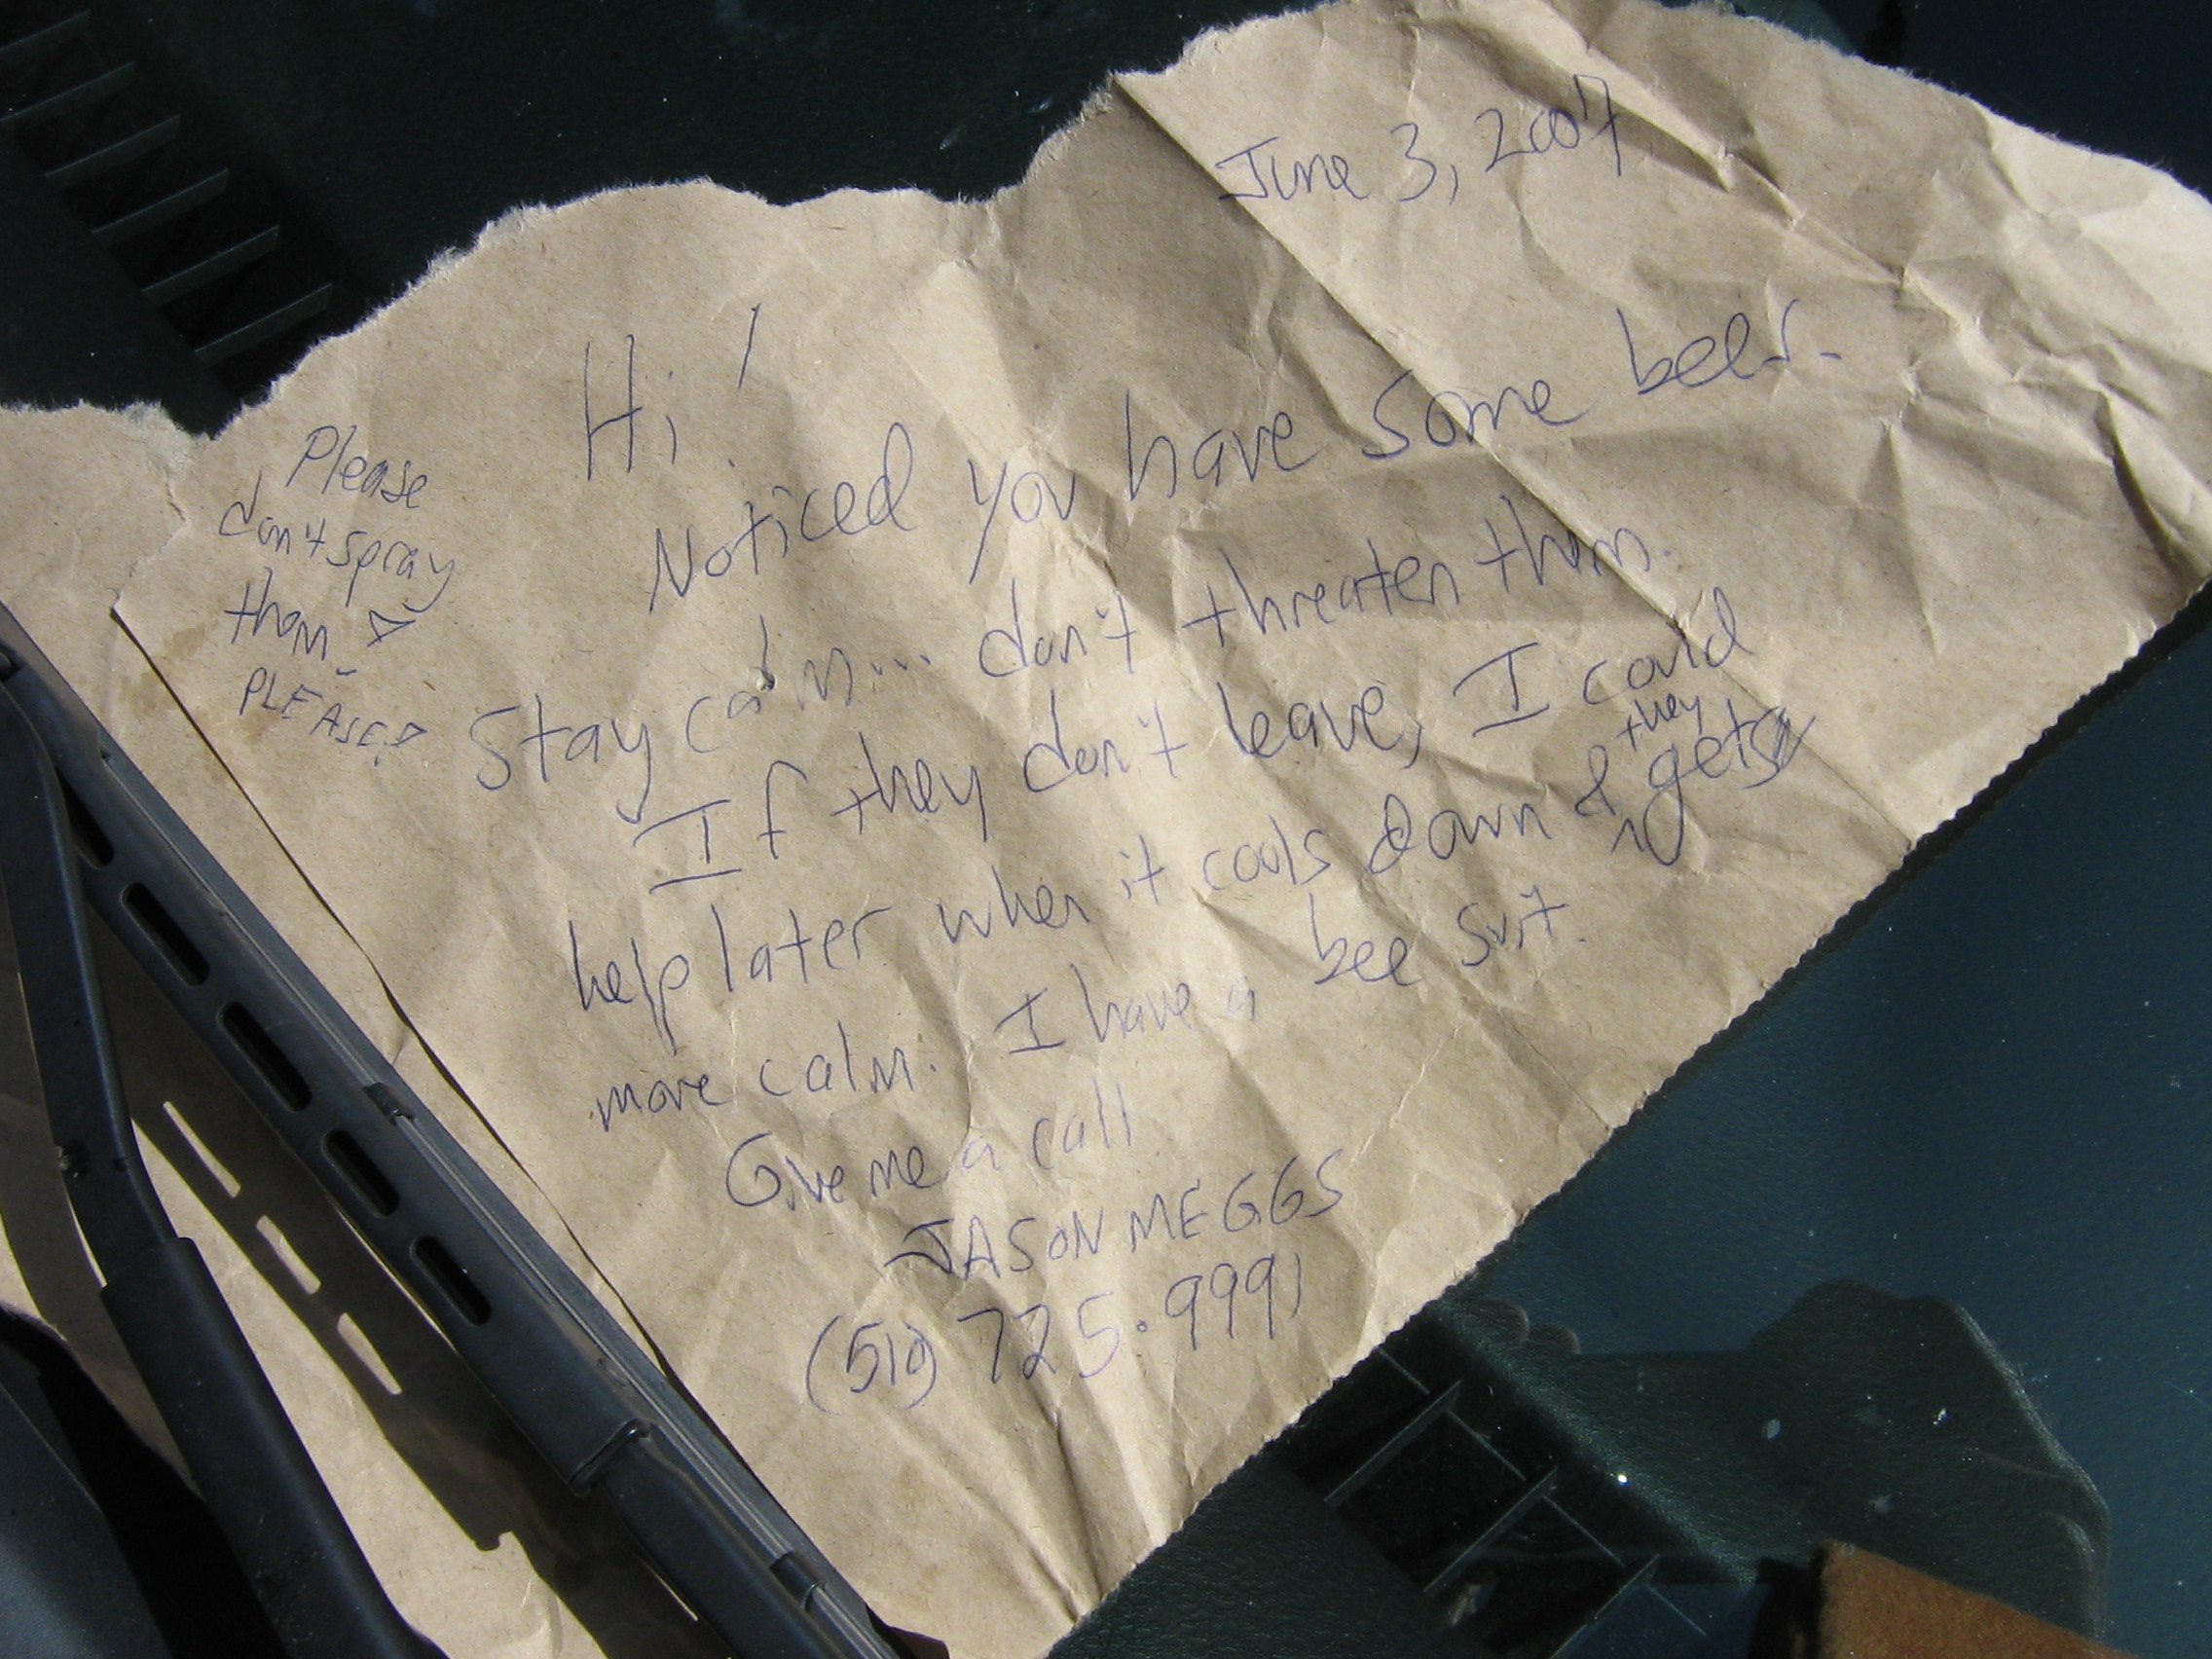 June 3, 2007
Hi!
Noticed you have some bees.
Stay calm... don't threaten them.
If they don't leave, I could
help later when it cools down & they gets
more calm. I have a bee suit.
Give me a call
JASON MEGGS
(510) 725.9991
Please
don't spray
them.
PLEASE?